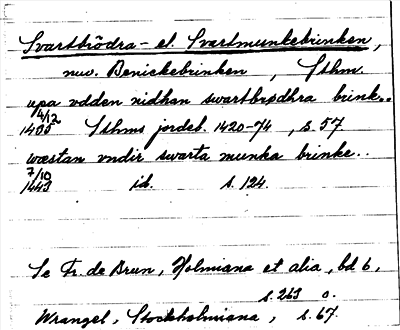 Svartbrödra- el. Svartmunkebrinken,
nuv. Benickebrinken, Sthm.
upa udden nidhan swartbrødhra brink..
4/12
1435 Sthms jordeb. 1420-74, s. 57.
wæstan vndir swarta munka brinke..
7/10
1443 id. s. 124.
Se Fr. de Brun, Holmiana et alia, bd 6,
s. 263 o.
Wrangel, Stockholmiana, s. 67.